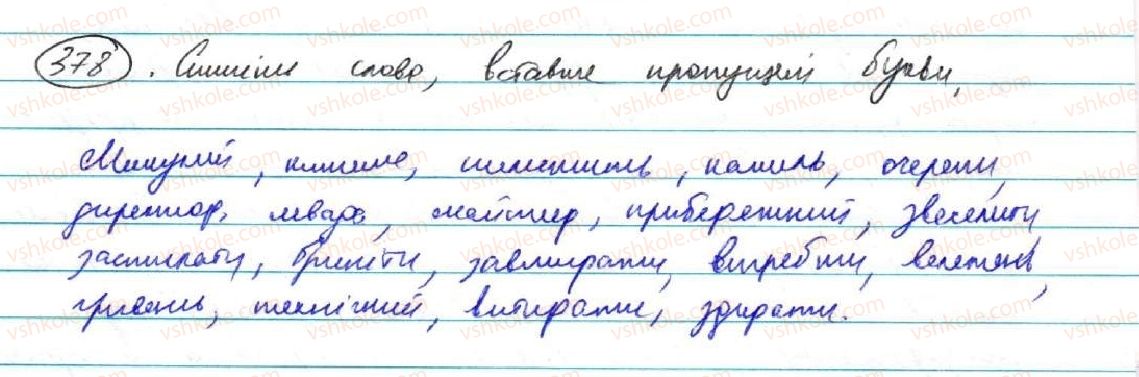 378. Спишіть слова, вставте пропущені букви.
Минулий, килим, , , очерети,
директор, левада, майстер, прибережний, звеселити
застилати, бриніти, завмирати, вигребти, велетень,
гребінь, технічний, витирати, здирати.
vshkole.com